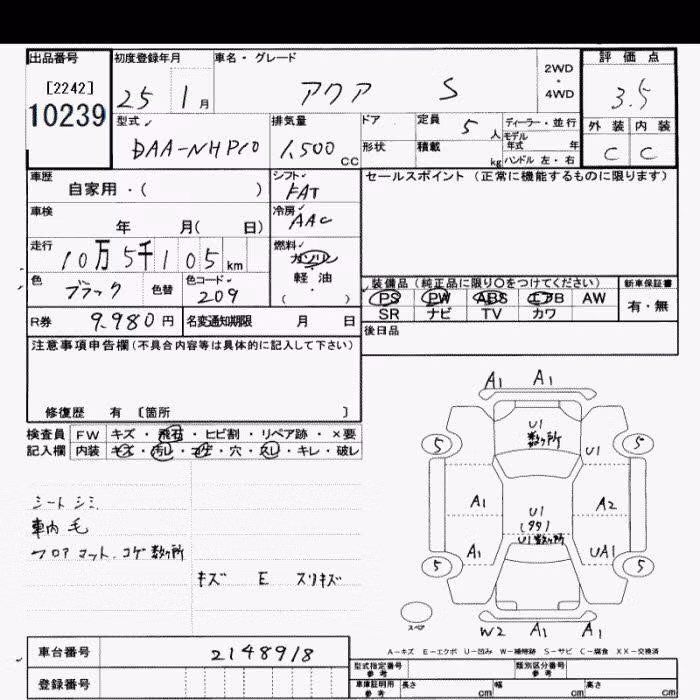 出品番号
[2242]
10239
初度登録年月
25 1月
車名・グレード
アクア S
2WD
・
4WD
評価点
3.5
外装 内装
C C
型式
DAA-NHP10
排気量
1,500 CC
ドア
形状
定員
5人
積載
kg
ディーラー・並行
モデル
年式 年
ハンドル 左・右
車歴
自家用・( )
シフト
FAT
セールスポイント (正常に機能するものに限ります)
車検
年 月( 日)
冷房
AAC
走行
10万5千105km
燃料
ガソリン
軽・油
( )
色
ブラック
色替
色コード
209
装備品 (純正品に限り○をつけてください)
PS PW ABS エアB AW
SR ナビ TV カワ
新車保証書
有・無
R券 9,980円
名変通知期限 月 日
後日品
注意事項申告欄(不具合内容等は具体的に記入して下さい)
修復歴 有 〔箇所 〕
検査員
記入欄
FW キズ・飛石・ヒビ割・リペア跡・×要
内装 キズ・汚レ・コゲ・穴・スレ・キレ・破レ
シートシミ
車内毛
フロアマット、コゲ数ヶ所
キズ E スリキズ
A1 A1
U1
数ヶ所
5 5
U1
A1 A2
U1
(99)
U1数ヶ所
A1 UA1
5 5
スペア
W2 A1 A1
A-キズ E-エクボ U-凹み W-補修跡 S-サビ C-腐食 XX-交換済
車台番号 2148918
登録番号
型式指定番号
参考
類別区分番号
参考
車庫証明用
参考
長さ cm 幅 cm 高さ cm